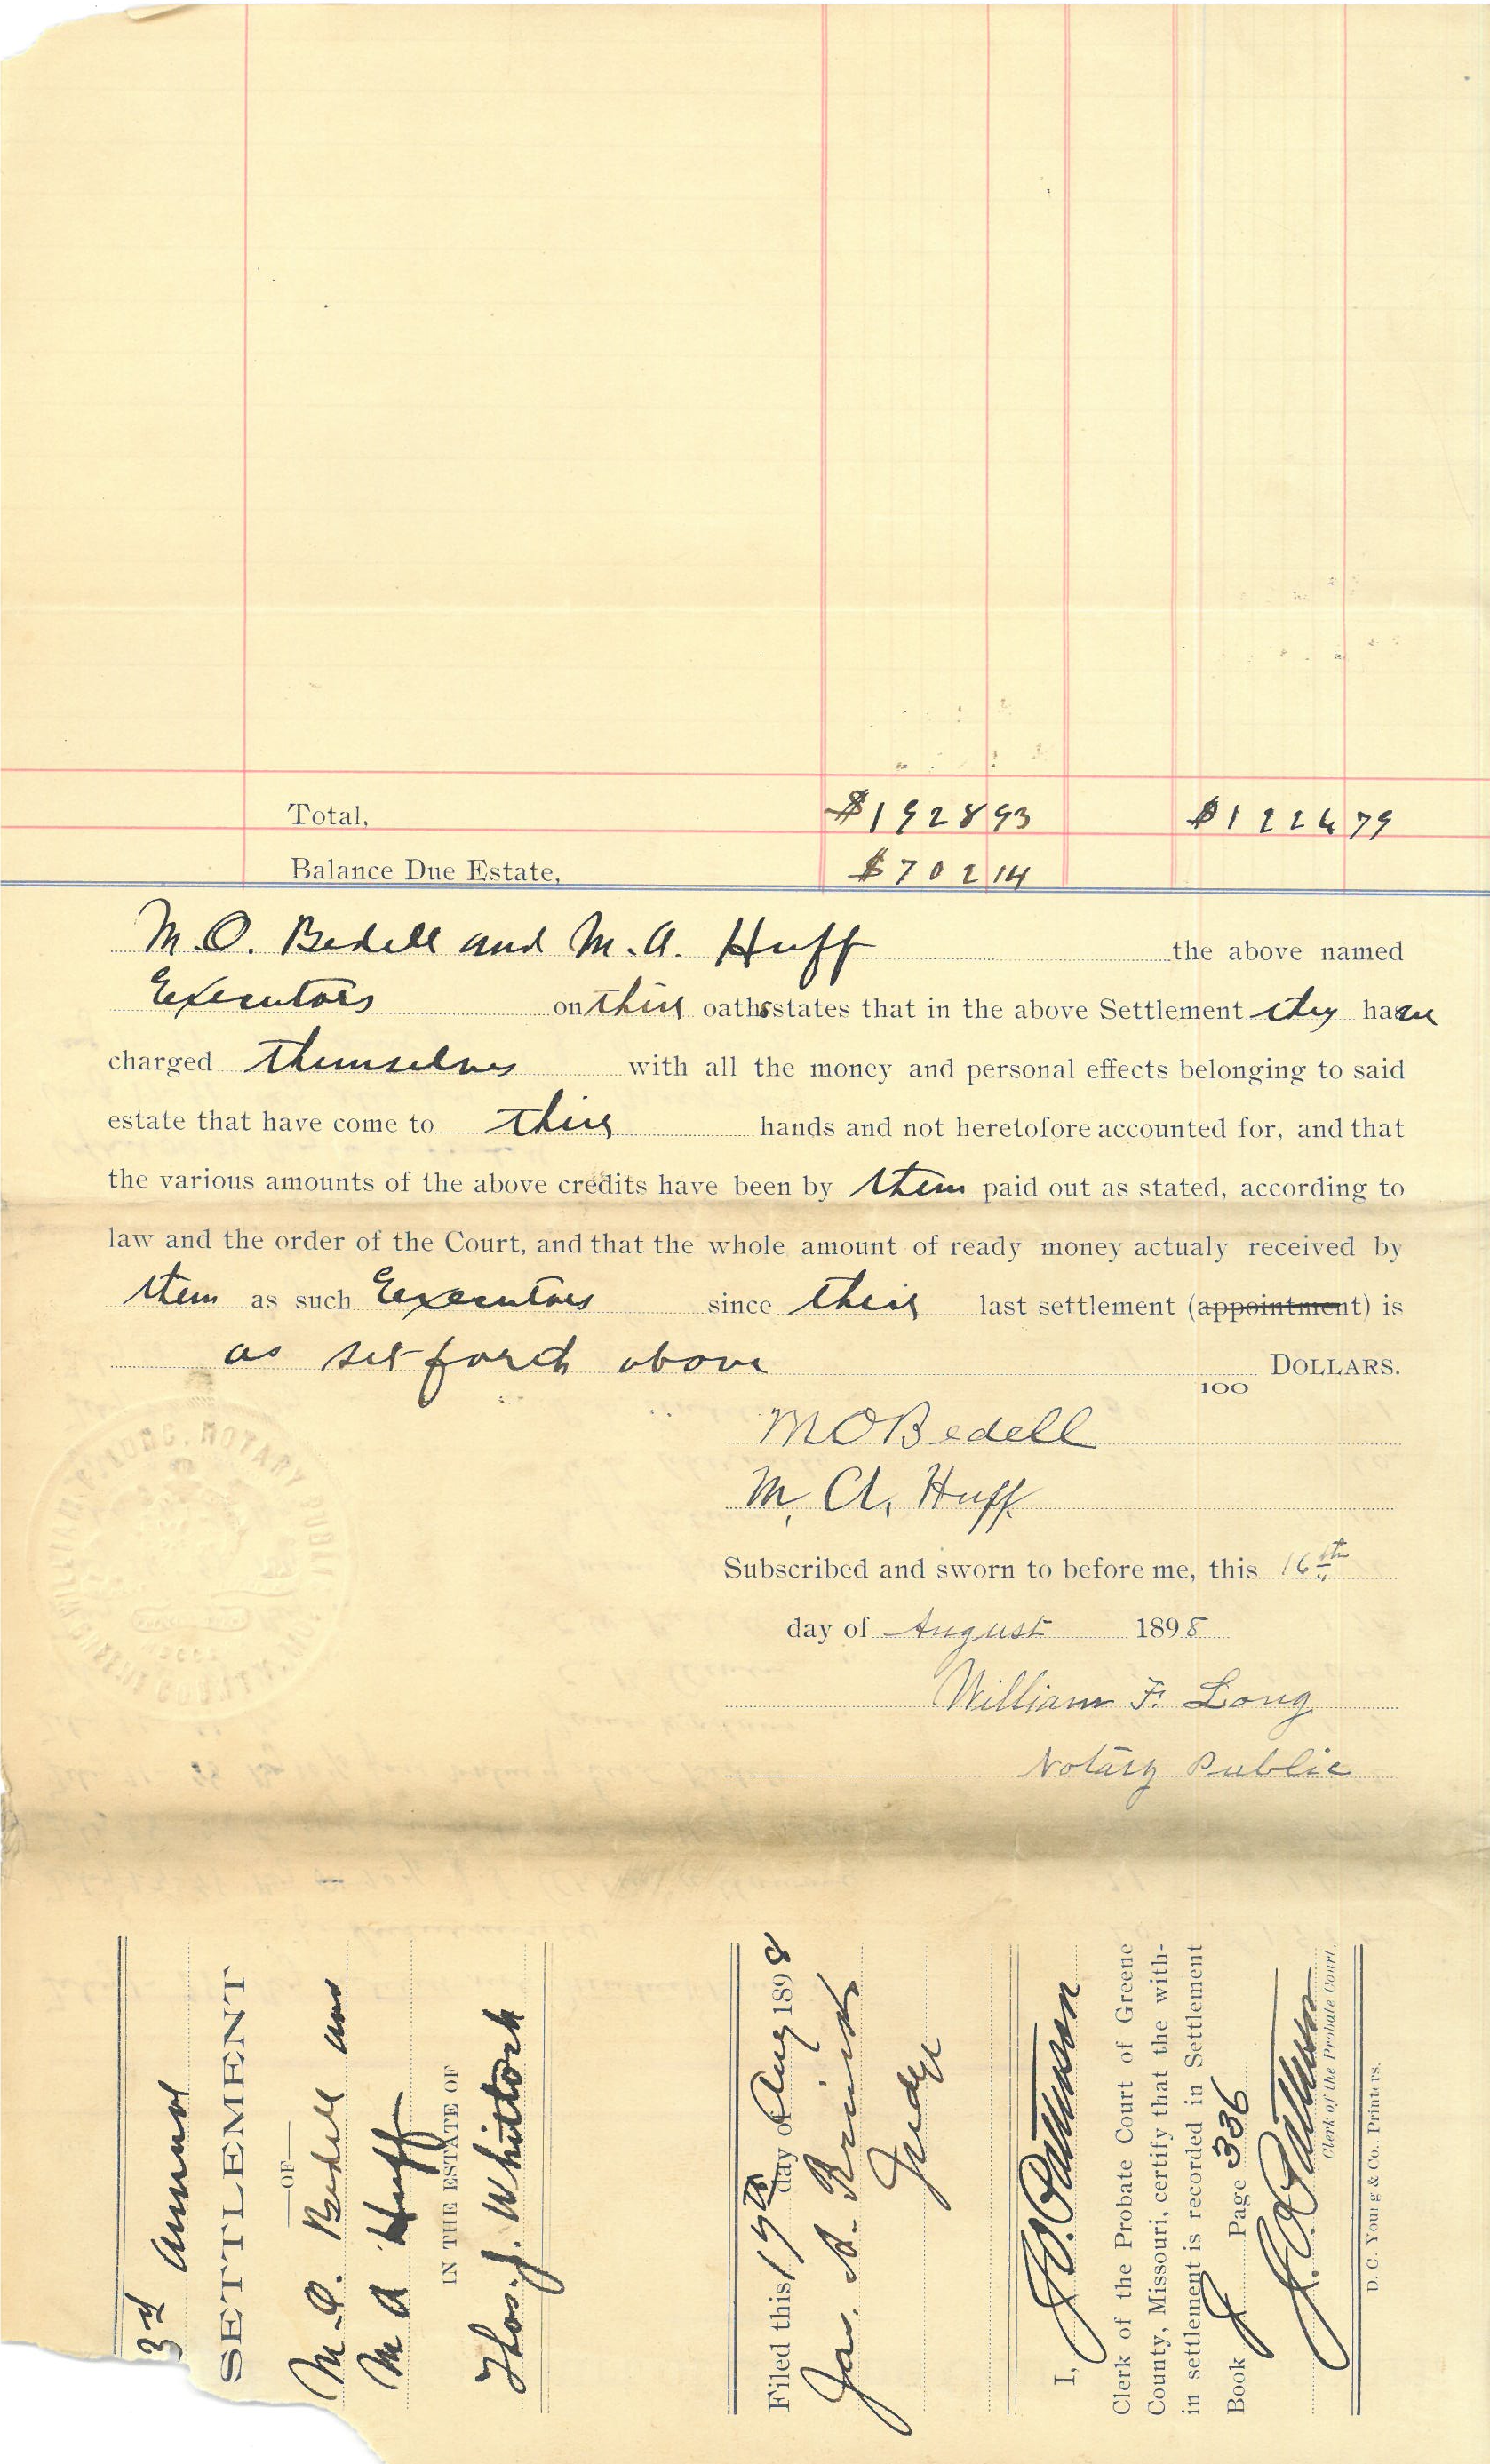 Total, $1928 93 $1226 79
Balance Due Estate, $702 14
M.O. Bedell and M.A. Huff the above named
Executors on their oaths states that in the above Settlement they have
charged themselves with all the money and personal effects belonging to said
estate that have come to their hands and not heretofore accounted for, and that
the various amounts of the above credits have been by them paid out as stated, according to
law and the order of the Court, and that the whole amount of ready money actualy received by
them as such Executors since their last settlement (appointment) is
as set forth above DOLLARS.
100
M O Bedell
M. A. Huff
LONG. NOTARY PUBLIC
Subscribed and sworn to before me, this 16th
day of August 1898
William F. Long
Notary Public
3rd Annual
SETTLEMENT
—OF—
M.O. Bedell and
M A Huff
IN THE ESTATE OF
Thos. J. Whitlock
Filed this 17th day of Aug 1898
Jas. A.
Judge
I, J.O. Patterson
Clerk of the Probate Court of Greene
County, Missouri, certify that the with-
in settlement is recorded in Settlement
Book J Page 336
J.O. Patterson
Clerk of the Probate Court.
D. C. Young & Co., Printers.